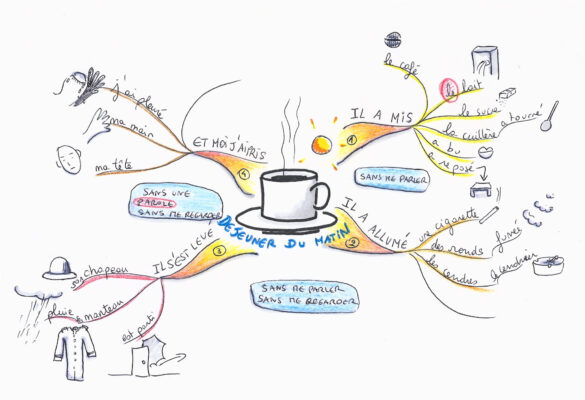 DEJEUNER DU MATIN
1
IL A MIS
le café
le lait
le sucre
la cuillère
a tourné
a bu
a reposé
SANS ME PARLER
2
IL A ALLUMÉ
une cigarette
des ronds
fumée
les cendres
le cendrier
SANS ME PARLER
SANS ME REGARDER
3
IL S'EST LEVÉ
son chapeau
pluie
manteau
est parti
SANS UNE
PAROLE
SANS ME REGARDER
4
ET MOI J'AI PRIS
ma tête
ma main
j'ai pleuré